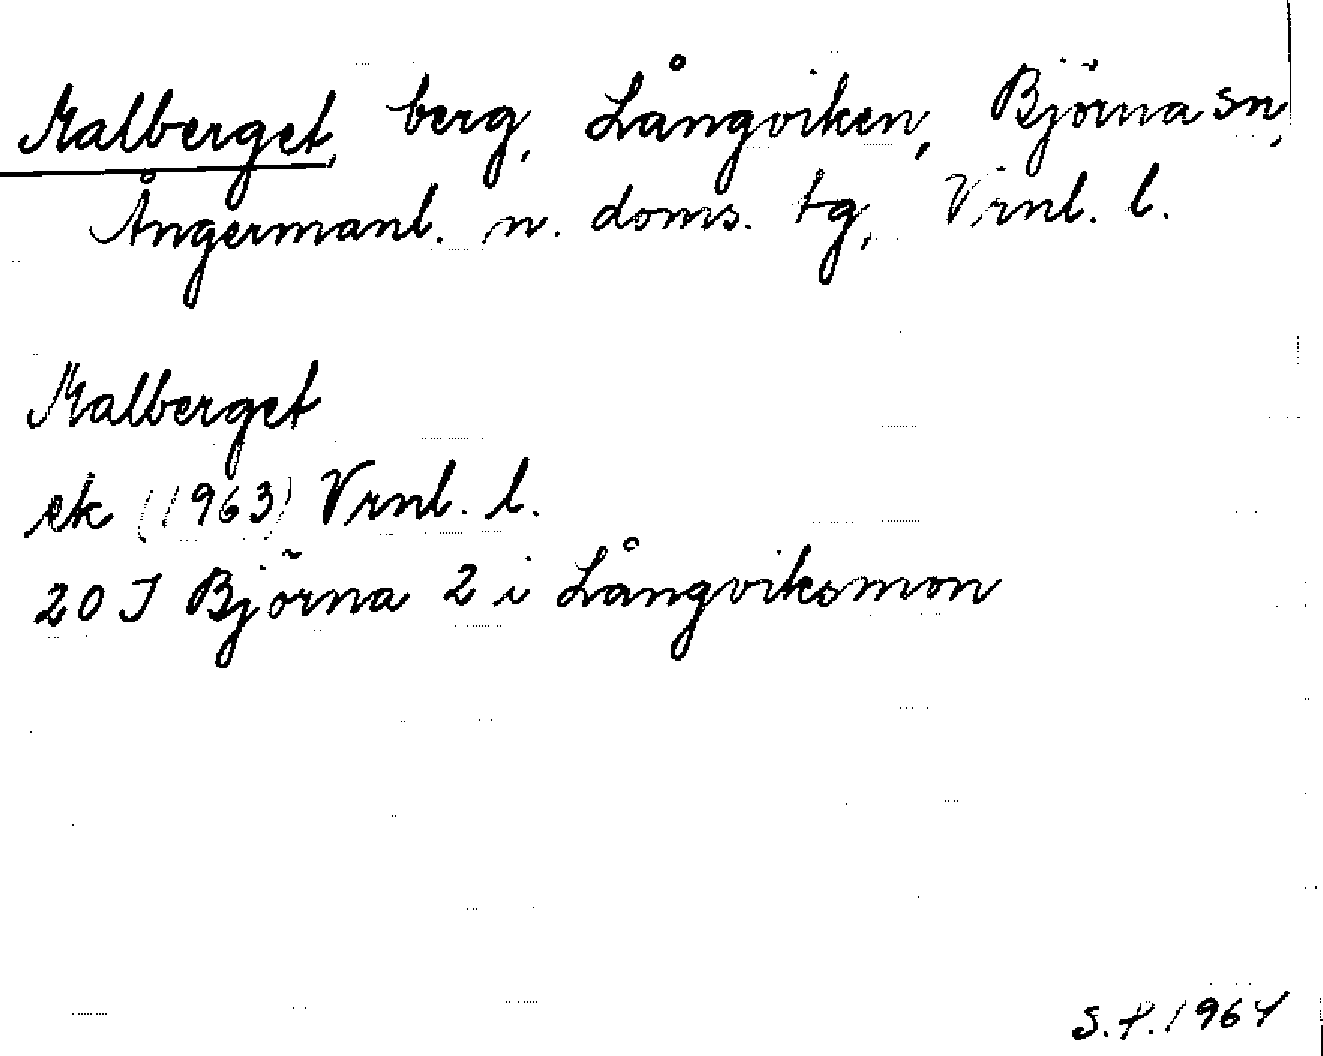 Malberget, berg, Långviken, Björna sn,
Ångermanl. n. doms. tg, Vrnl. l.
Malberget
ek (1963) Vrnl. l.
20 J Björna 2 i Långviksmon
S.P. 1964